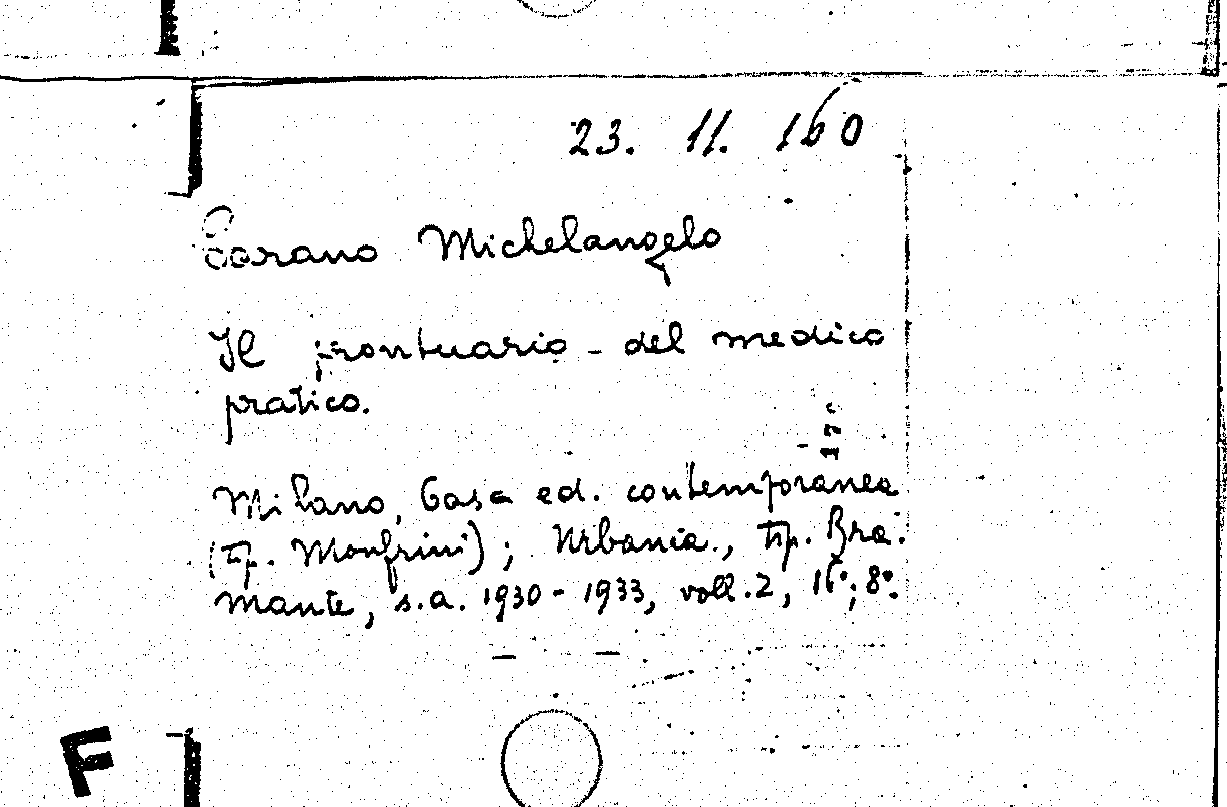 23. 11. 160
Carano Michelangelo
Il prontuario - del medico
pratico.
17°
Milano, Casa ed. contemporanea
(tip. Monfrini); Urbania., tip. Bra.
mante, s.a. 1930 - 1933, voll. 2, 16°; 8°.
F